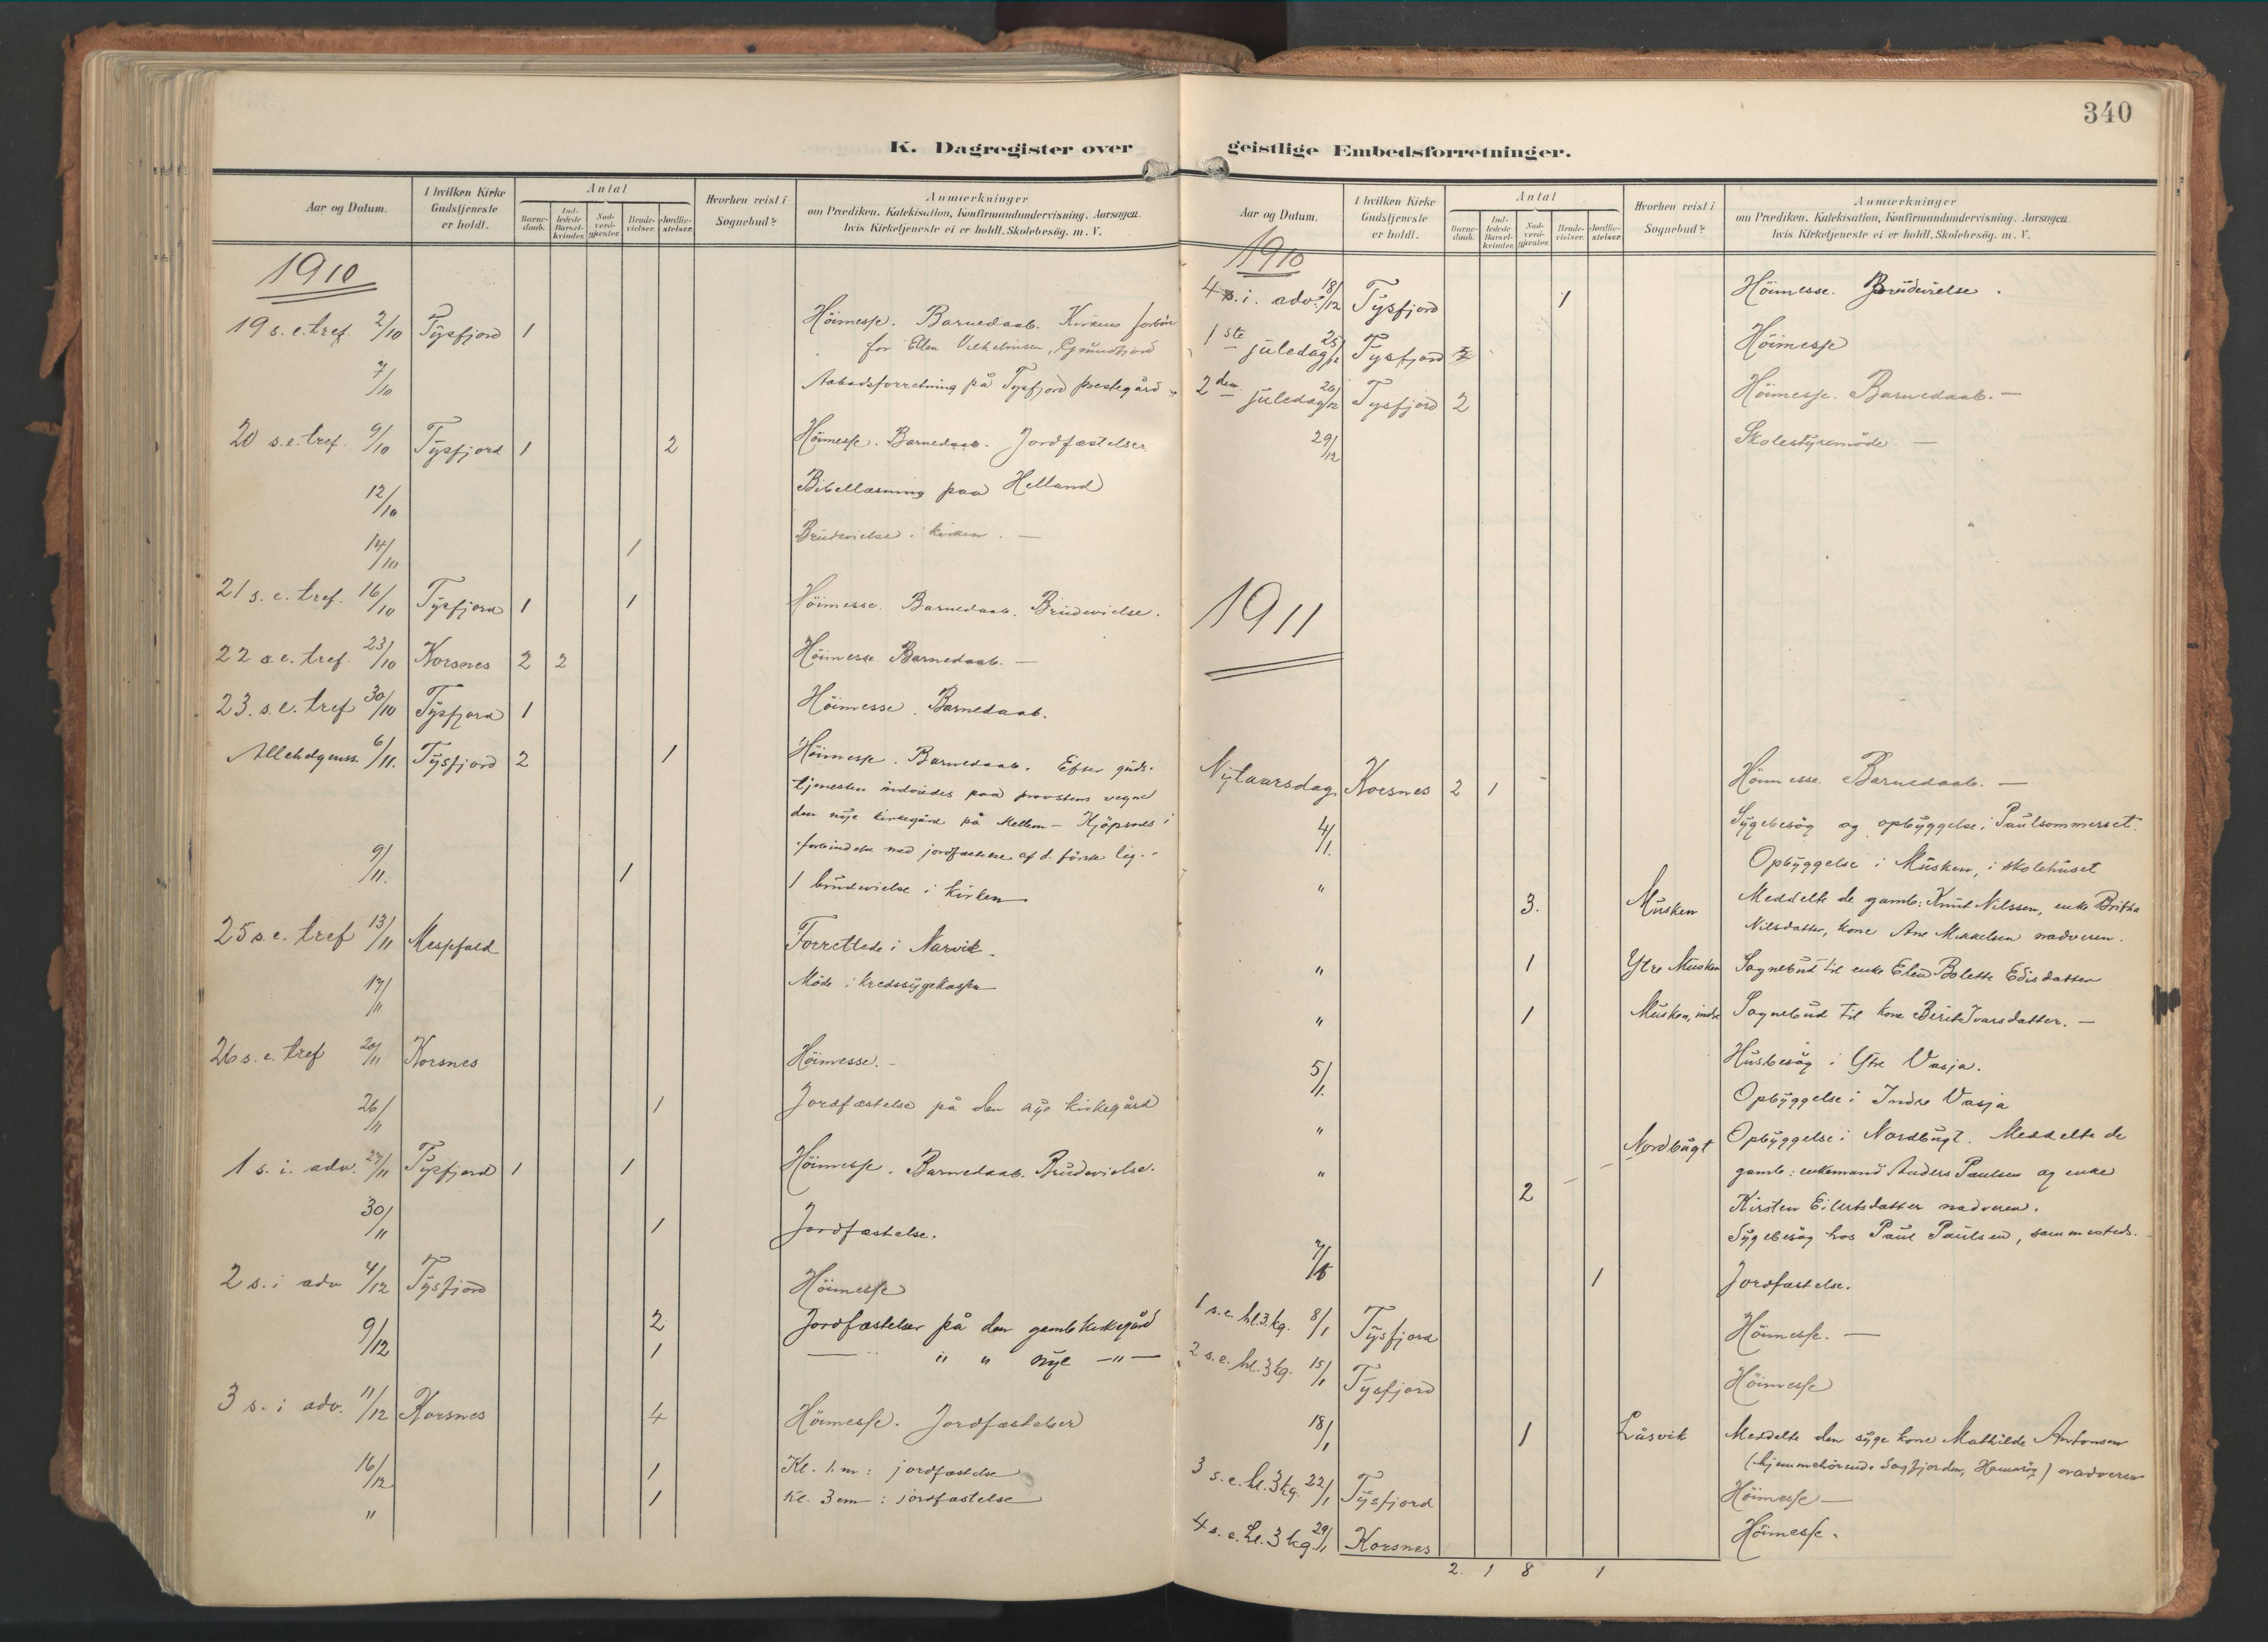 340
K. Dagregister over geistlige Embedsforretninger.
Aar og Datum. I hvilken Kirke Gudstjeneste er holdt. Antal Barne-daab. Ind-ledede Barsel-kvinder. Nad-verd-gjester. Brude-vielser. Jordfæ-stelser. Hvorhen reist i Sognebud? Anmærkninger om Prædiken, Katekisation, Konfirmandundervisning, Aarsagen, hvis Kirketjeneste ei er holdt, Skolebesög. m. V.
1910
19 s. e. tref 2/10 Tysfjord 1 Höimesse. Barnedaab. Kirkens forbön
for Ellen Vilhelmsen, Grundfjord
7/10 Aabodsforretning på Tysfjord prestegård
20 s. e. tref. 9/10 Tysfjord 1 2 Höimesse. Barnedaab. Jordfæstelser
12/10 Bibellæsning paa Helland
14/10 1 Brudevielse i kirken. —
21 s. e. tref. 16/10 Tysfjord 1 1 Höimesse. Barnedaab. Brudevielse.
22 s. e. tref. 23/10 Korsnes 2 2 Höimesse. Barnedaab. —
23. s. e. tref 30/10 Tysfjord 1 Höimesse. Barnedaab.
Allehelgenss. 6/11. Tysfjord 2 1 Höimesse. Barnedaab. Efter guds-
tjenesten indviedes paa provstens vegne
den nye kirkegård på Mellem-Kjöpsnes i
forbindelse med jordfæstelse af d. förste lig. -
9/11. 1 1 brudevielse i kirken
25 s. e. tref 13/11 Messefald Forrettede i Narvik.
17/11 Möde i kredssygekassen
26 s. e. tref 20/11 Korsnes Höimesse. -
26/11 1 Jordfæstelse på den nye kirkegård
1 s. i. adv. 27/11 Tysfjord 1 1 Höimesse. Barnedaab. Brudevielse.
30/11 1 Jordfæstelse.
2 s. i adv 4/12 Tysfjord Höimesse
9/12 2 Jordfæstelser på den gamle kirkegård
1 — " " nye —"—
3 s. i adv. 11/12 Korsnes 4 Höimesse. Jordfæstelser
16/12 1 Kl. 1. m: jordfæstelse
" 1 Kl. 3 em: jordfæstelse
Aar og Datum. I hvilken Kirke Gudstjeneste er holdt. Antal Barne-daab. Ind-ledede Barsel-kvinder. Nad-verd-gjester. Brude-vielser. Jordfæ-stelser. Hvorhen reist i Sognebud? Anmærkninger om Prædiken, Katekisation, Konfirmandundervisning, Aarsagen, hvis Kirketjeneste ei er holdt, Skolebesög. m. V.
1910
4 s. i. adv. 18/12 Tysfjord 1 Höimesse. Brudevielse.
1ste juledag 25/12 Tysfjord Höimesse
2den juledag 26/12 Tysfjord 2 Höimesse. Barnedaab. —
29/12 Skolestyremöde. —
1911
Nytaarsdag Korsnes 2 1 - Höimesse. Barnedaab. —
4/1. Sygebesög og opbyggelse i Paulsommerset.
Opbyggelse i Musken, i skolehuset
" 3. Musken Meddelte de gamle: Knut Nilssen, enke Britha
Nilsdatter, kone Ane Mikkelsen nadveren.
" 1 Ytre Musken Sognebud til enke Elen Bolette Edisdatter
" 1 Musken, indre Sognebud til kone Berit Ivarsdatter. —
5/1. Husbesög i Ytre Vasja.
Opbyggelse i Indre Vasja
" Nordbugt Opbyggelse i Nordbugt. Meddelte de
" 2 gamle: enkemand Anders Paulsen og enke
Kirsten Eilertsdatter nadveren.
Sygebesög hos Paul Paulsen, sammesteds.
7/1 1 Jordfæstelse.
1 s. e. hl. 3 kg. 8/1 Tysfjord Höimesse. —
2 s. e. hl. 3 kg. 15/1 Tysfjord Höimesse
18/1 1 Låsvik Meddelte den syge kone Mathilde Antonsen
(hjemmehörende Sagfjorden, Hamaröy) nadveren
3 s. e. hl. 3 kg. 22/1 Tysfjord Höimesse —
4 s. e. hl. 3 kg. 29/1 Korsnes Höimesse.
2. 1 8 1